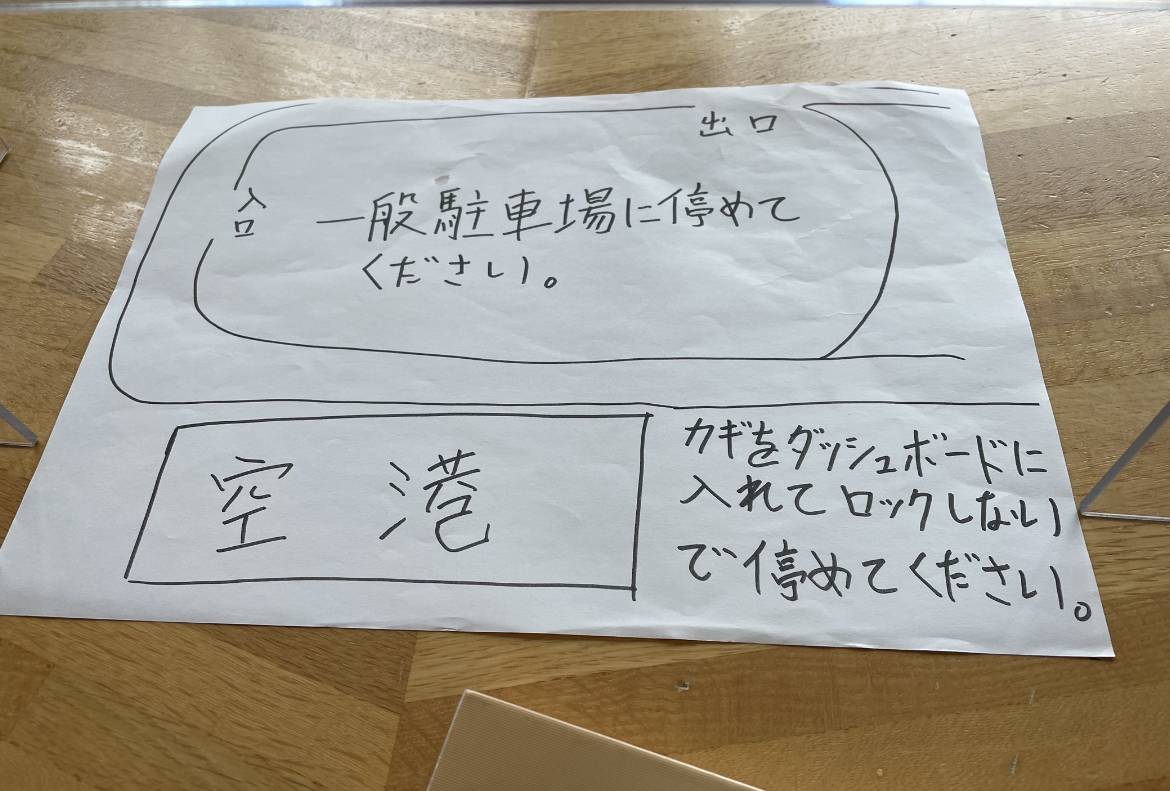 出口
入口
一般駐車場に停めて
ください。
空港
カギをダッシュボードに
入れてロックしない
で停めてください。